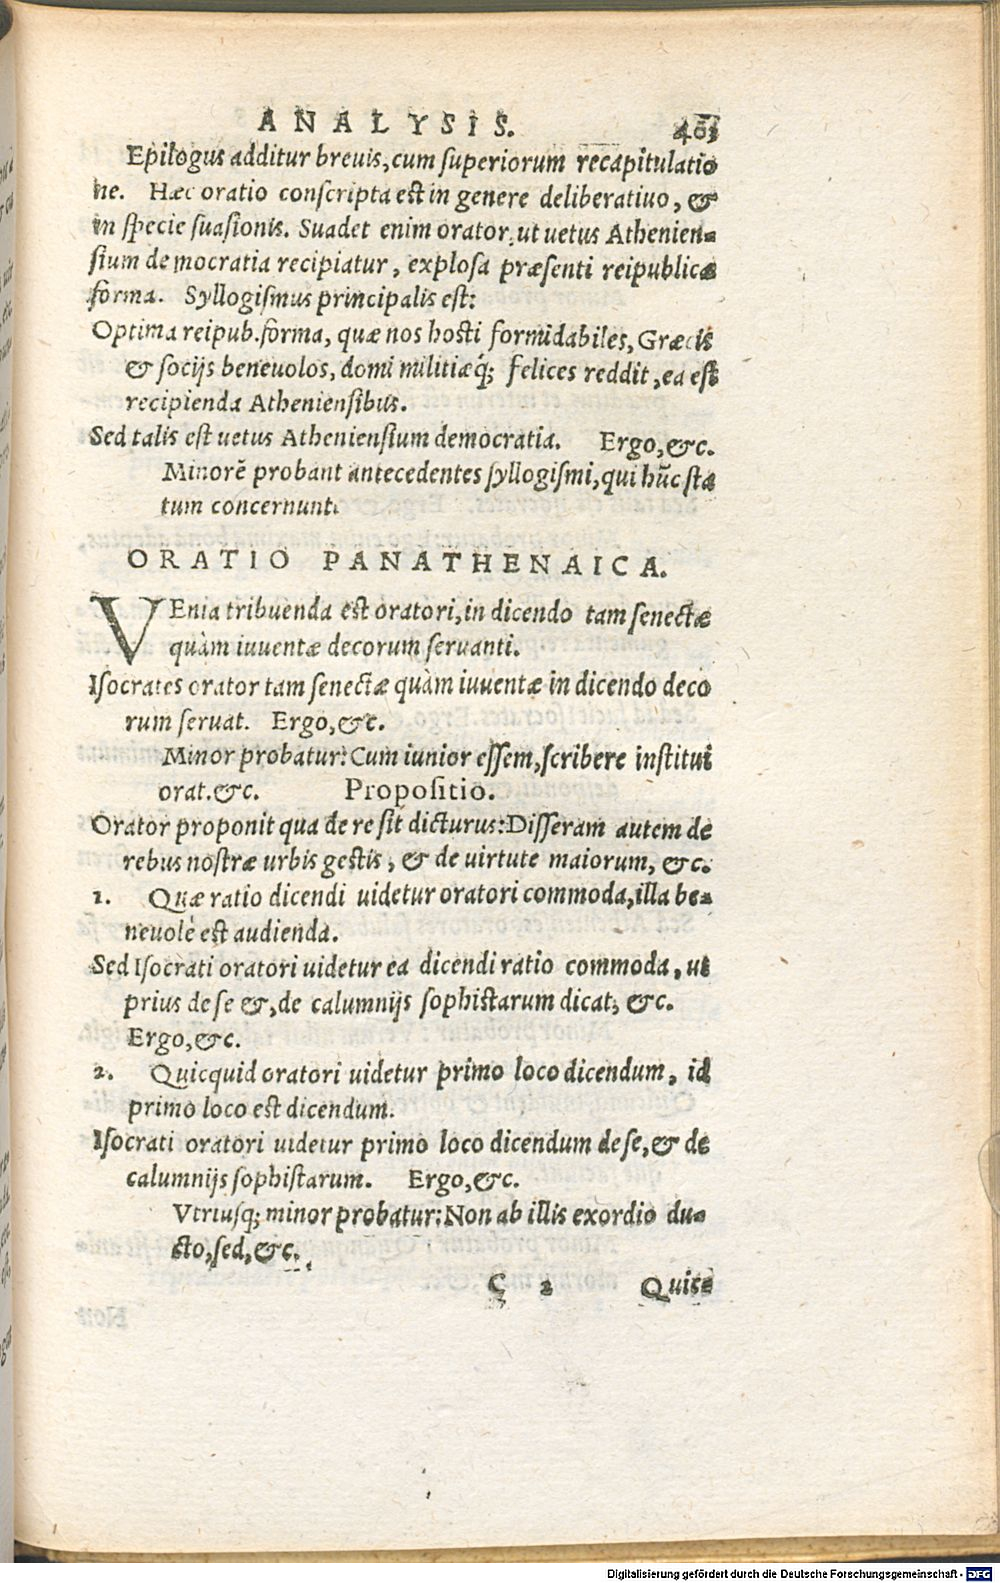 ANALYSIS. 403
Epilogus additur breuis, cum superiorum recapitulatio
ne. Hæc oratio conscripta est in genere deliberatiuo, &
in specie suasionis. Suadet enim orator, ut uetus Athenien-
sium democratia recipiatur, explosa præsenti reipublicæ
forma. Syllogismus principalis est:
Optima reipub. forma, quæ nos hosti formidabiles, Græcis
& socijs beneuolos, domi militiæq́; felices reddit, ea est
recipienda Atheniensibus.
Sed talis est uetus Atheniensium democratia. Ergo, &c.
Minorē probant antecedentes syllogismi, qui hūc sta
tum concernunt.
ORATIO PANATHENAICA.
VEnia tribuenda est oratori, in dicendo tam senectæ
quàm iuuentæ decorum seruanti.
Isocrates orator tam senectæ quàm iuuentæ in dicendo deco
rum seruat. Ergo, &c.
Minor probatur: Cum iunior essem, scribere institui
orat. &c. Propositio.
Orator proponit qua de re sit dicturus: Disseram autem de
rebus nostræ urbis gestis, & de uirtute maiorum, &c.
1. Quæ ratio dicendi uidetur oratori commoda, illa be-
neuolè est audienda.
Sed Isocrati oratori uidetur ea dicendi ratio commoda, ut
prius de se &, de calumnijs sophistarum dicat, &c.
Ergo, &c.
2. Quicquid oratori uidetur primo loco dicendum, id
primo loco est dicendum.
Isocrati oratori uidetur primo loco dicendum de se, & de
calumnijs sophistarum. Ergo, &c.
Vtriusq; minor probatur: Non ab illis exordio du-
cto, sed, &c.
C 2 Quic-
Digitalisierung gefördert durch die Deutsche Forschungsgemeinschaft - DFG